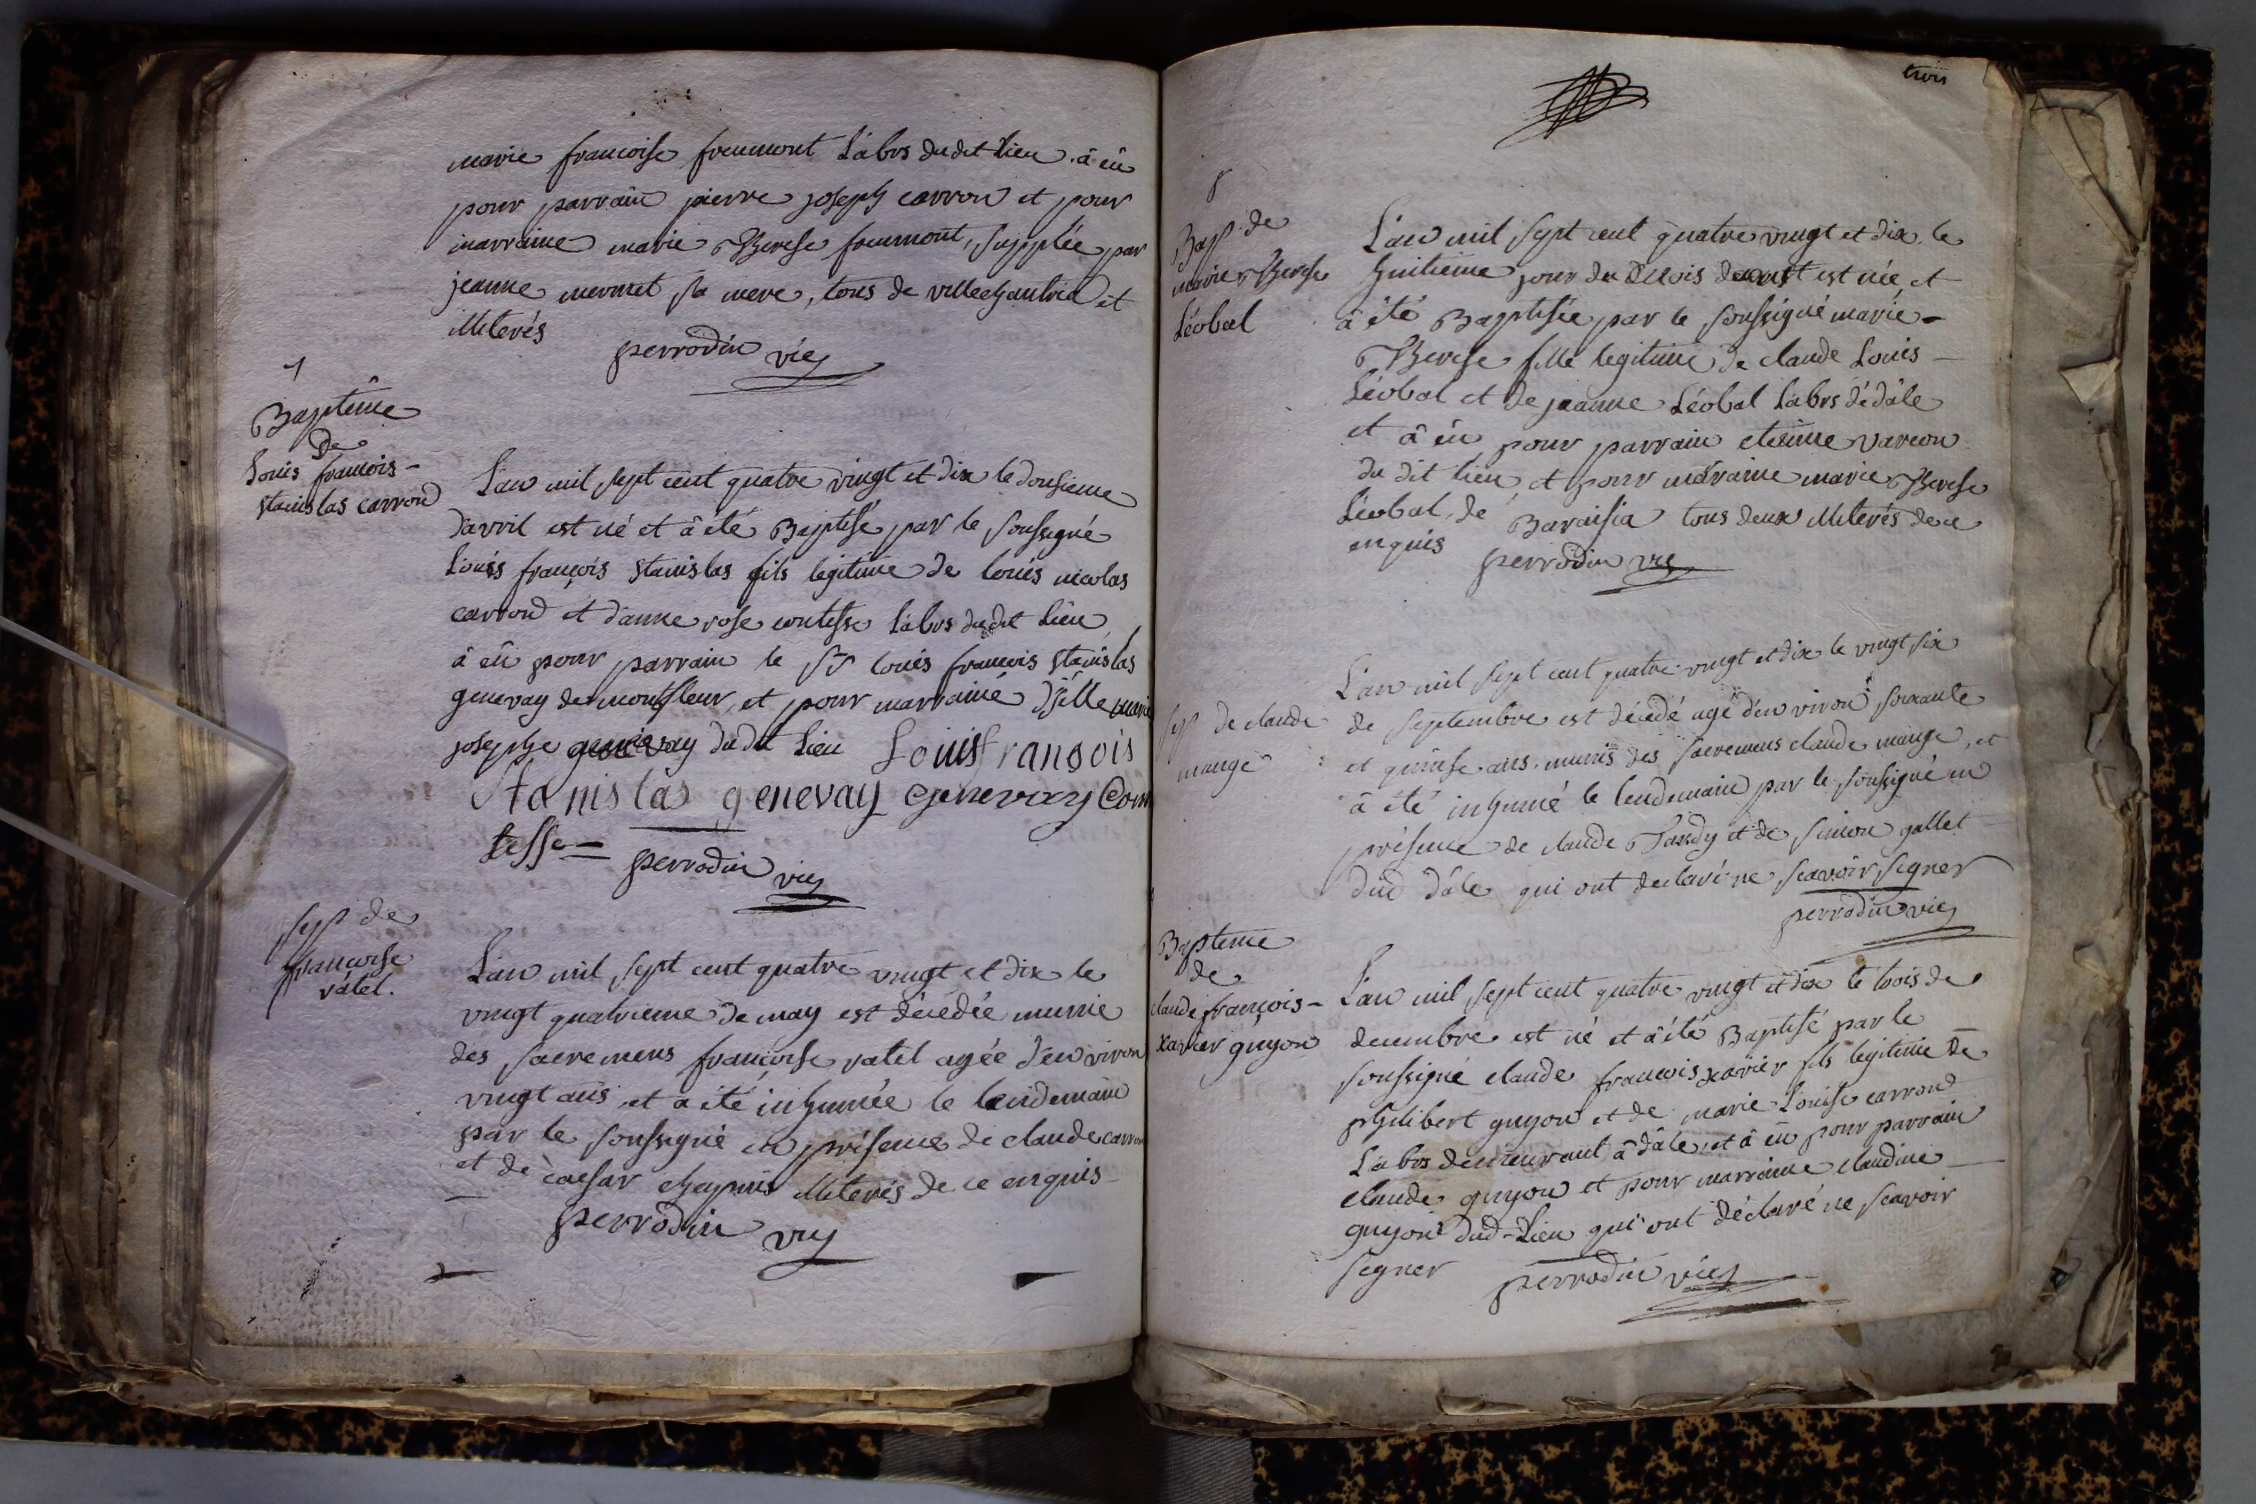 marie francoise freumont Labrs dudit Lieu. â êu
pour parrain pierre joseph carron et pour
marraine marie Therese freumont, supplée par
jeanne mermet sa mere, tous de villechantria et
illiterés
perrodin vic
1
Baptême
De
Louis francois -
stanislas carrond
L'an mil sept cent quatre vingt et dix le dousieme
d'avril est né et â été Baptisé par le soussigné
Louis françois stanislas fils legitime de louis nicolas
carrond et d'anne rose contesse Labrs dudit Lieu
â êu pour parrain le sr louis francois stanislas
genevay de montfleur, et pour marraine dlle marie
josephe genevay dudit Lieu Louis fransois
stanislas genevay genevay Com
tesse
perrodin vic
sep de
francoise
vatel.
L'an mil sept cent quatre vingt et dix le
vingt quatrieme de may est décedée munie
des sacremens francoise vatel agée d'en viron
vingt ans et a été inhumée le lendemain
par le soussigné en présence de claude carron
et de caesar chapuis illiterés de ce enquis
perrodin vic
trois
8
Bap. de
marie Therese
Léobal
L'an mil sept cent quatre vingt et dix le
huitieme jour du Mois d'aoust est née et
â été Baptisée par le soussigné marie -
Therese fille legitime de claude Louis
Léobal et de jeanne Léobal Labrs dédâle
et â êu pour parrain etienne varcon
du dit lieu et pour maraine marie Therese
Léobal, de Baraisia tous deux illiterés de ce
enquis
perrodin vic
sep de claude
mange
L'an mil sept cent quatre vingt et dix le vingt six
de septembre est décedé agé d'en viron soixante
et quinse ans. munis des sacremens claude mange, et
â été inhumé le lendemain par le soussigné en
présence de claude Tardy et de simon gallet
dud dâle qui ont declaré ne scavoir signer
perrodin vic
Bapteme
de
claude françois -
xavier guyon
L'an mil sept cent quatre vingt et dix le trois de
decembre est né et â été Baptisé par le
soussigné claude francois xavier fils legitime de
philibert guyon et de marie Louise carrond
Labrs demeurant â dâle, et â êu pour parrain
claude guyon et pour marraine claudine
guyon dud-Lieu qui ont déclaré ne scavoir
segner
perrodin vic